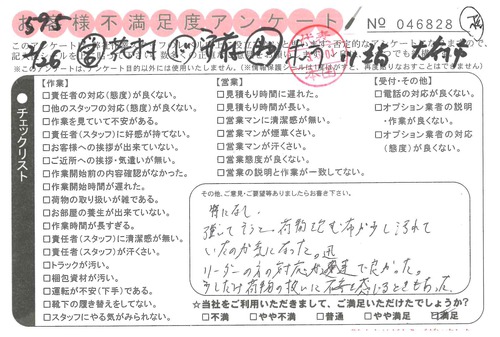 お客様不満足度アンケート
No 046828
※このアンケートは、アンケート目的以外には使用いたしません。
チェックリスト
【作業】
□責任者の対応(態度)が良くない。
□他のスタッフの対応(態度)が良くない。
□作業を見ていて不安がある。
□責任者(スタッフ)に好感が持てない。
□お客様への挨拶が出来ていない。
□ご近所への挨拶・気遣いが無い。
□作業開始前の内容確認がなかった。
□作業開始時間が遅れた。
□荷物の取り扱いが雑である。
□お部屋の養生が出来ていない。
□作業時間が長すぎる。
□責任者(スタッフ)に清潔感が無い。
□責任者(スタッフ)が汗くさい。
□トラックが汚い。
□梱包資材が汚い。
□運転が不安(下手)である。
□靴下の履き替えをしてない。
□スタッフにやる気がみられない。
【営業】
□見積もり時間に遅れた。
□見積もり時間が長い。
□営業マンに清潔感が無い。
□営業マンが煙草くさい。
□営業マンが汗くさい。
□営業態度が良くない。
□営業の説明と作業が一致してない。
【受付・その他】
□電話の対応が良くない。
□オプション業者の説明
・作業が良くない。
□オプション業者の対応
(態度)が良くない。
その他、ご意見・ご要望等ありましたらお書き下さい。
特になし。
強いて言うと、荷物を包む布が少し汚れて
いたのが気になった。
リーダーの方の対応が迅速で良かった。
少しだけ荷物の扱いに不安を感じるときもあった。
☆当社をご利用いただきまして、ご満足いただけたでしょうか?
□不満 □やや不満 □普通 □やや満足 □満足